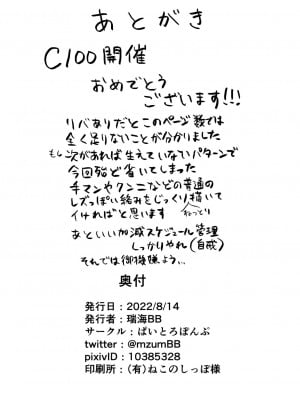 あとがき
C100開催
おめでとう
ございます!!!
リバありだとこのページ数では
全く足りないことが分かりました
もし次があれば生えていないパターンで
今回殆ど省いてしまった
手マンやクンニなどの普通の
レズっぽい絡みをじっくり描いて
ねっとり
イければと思います
あといい加減スケジュール管理
しっかりやれ(自戒)
それでは御機嫌よう...
奥付
発行日:2022/8/14
発行者:瑞海BB
サークル:ぱいとろぼんぶ
twitter:@mzumBB
pixivID:10385328
印刷所:(有)ねこのしっぽ様